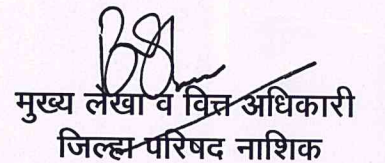 मुख्य लेखा व वित्त अधिकारी
जिल्हा परिषद नाशिक